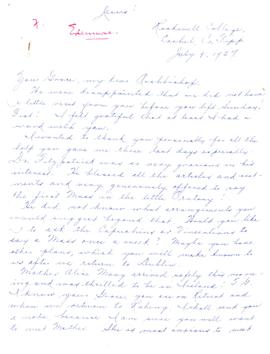 Jesus!
K. Edenmore.
Rockwell College,
Cashel, Co. Tipp
July 4, 1939
Your Grace, my dear Archbishop,
We were disappointed that we did not have
a little visit from you before you left Sunday.
But I felt grateful that at least I had a
word with you.
I wanted to thank you personally for all the
help you gave me these last days especially
Dr. Fitzpatrick was so very gracious in his
interest. He blessed all the articles and vest-
ments and very generously offered to say
the first Mass in the little Oratory!
He did not know what arrangements you
would suggest beyond that. Would you like
us to ask the Capuchins or Vincentians to
say a Mass once a week? Maybe you have
other plans, which you will make known to
us after we return to Dublin.
Mother Alice Mary arrived safely this morn-
ing and was thrilled to be in Ireland!
I know your Grace, you are on Retreat and
when we return to I shall send you
a note because I am sure you will want
to meet Mother. She is most anxious to meet